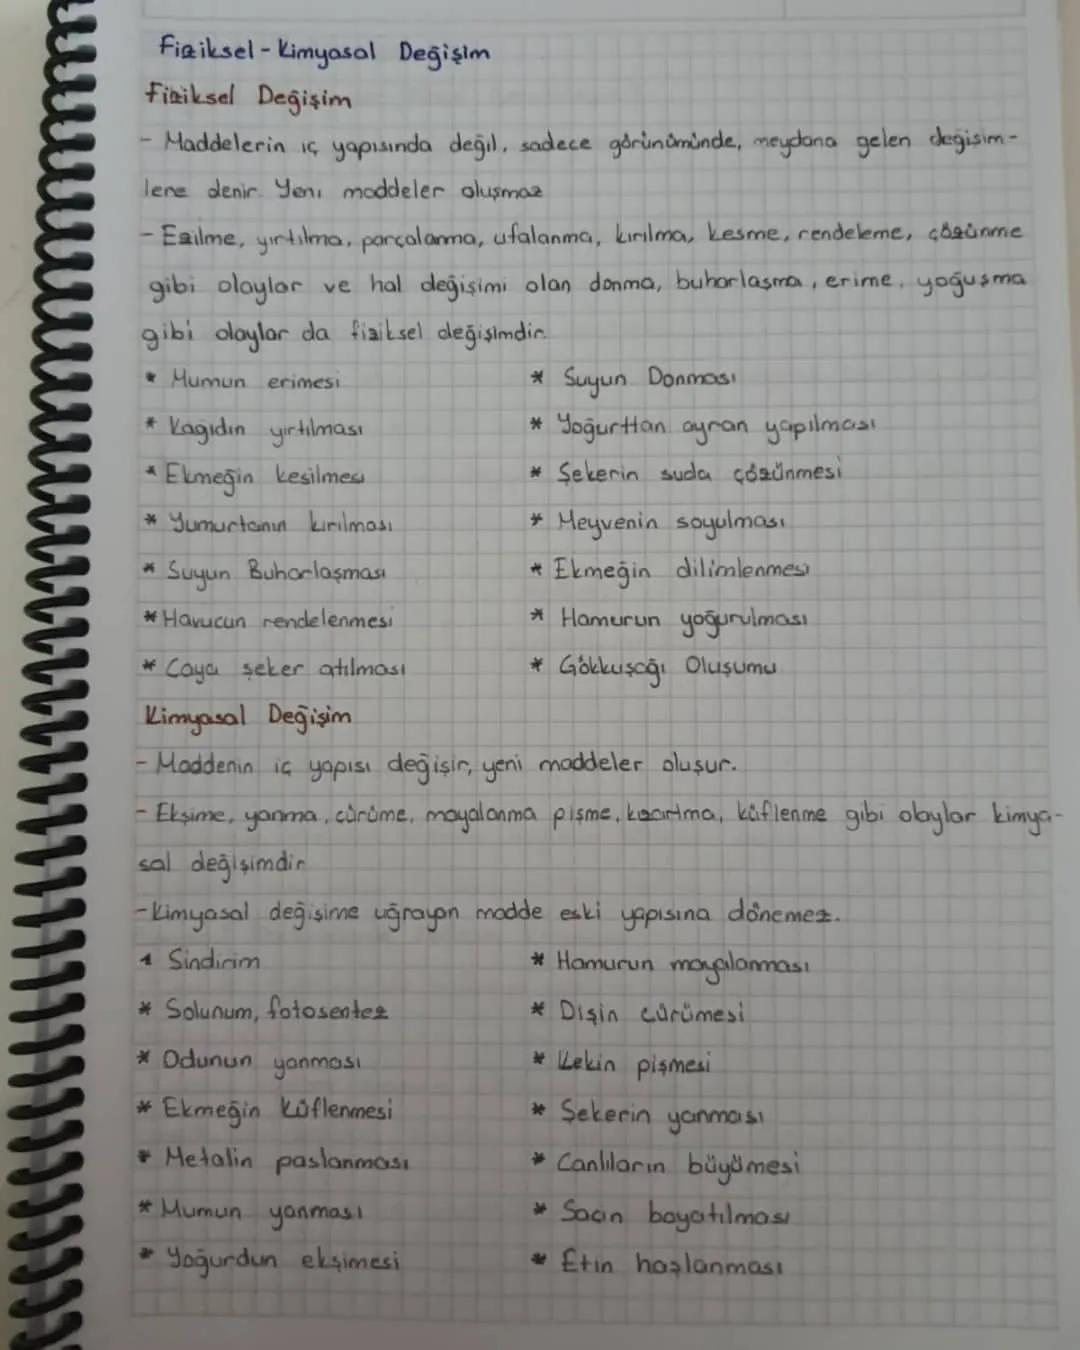 Fiziksel - Kimyasal Değişim
Fiziksel Değişim
- Maddelerin iç yapısında değil, sadece görünümünde, meydana gelen değişim-
lere denir. Yeni maddeler oluşmaz
- Ezilme, yırtılma, parçalanma, ufalanma, kırılma, kesme, rendeleme, çözünme
gibi olaylar ve hal değişimi olan donma, buharlaşma, erime, yoğuşma
gibi olaylar da fiziksel değişimdir.
* Mumun erimesi
* Suyun Donması
* Kağıdın yırtılması
* Yoğurttan ayran yapılması
* Ekmeğin kesilmesi
* Şekerin suda çözünmesi
* Yumurtanın kırılması
* Meyvenin soyulması
* Suyun Buharlaşması
* Ekmeğin dilimlenmesi
* Havucun rendelenmesi
* Hamurun yoğurulması
* Çaya şeker atılması
* Gökkuşağı Oluşumu
Kimyasal Değişim
- Maddenin iç yapısı değişir, yeni maddeler oluşur.
- Ekşime, yanma, çürüme, mayalanma pişme, kızartma, küflenme gibi olaylar kimya-
sal değişimdir
- Kimyasal değişime uğrayan madde eski yapısına dönemez.
* Sindirim
* Hamurun mayalanması
* Solunum, fotosentez
* Dişin çürümesi
* Odunun yanması
* Kekin pişmesi
* Ekmeğin küflenmesi
* Şekerin yanması
* Metalin paslanması
* Canlıların büyümesi
* Mumun yanması
* Saçın boyatılması
* Yoğurdun ekşimesi
* Etin haşlanması